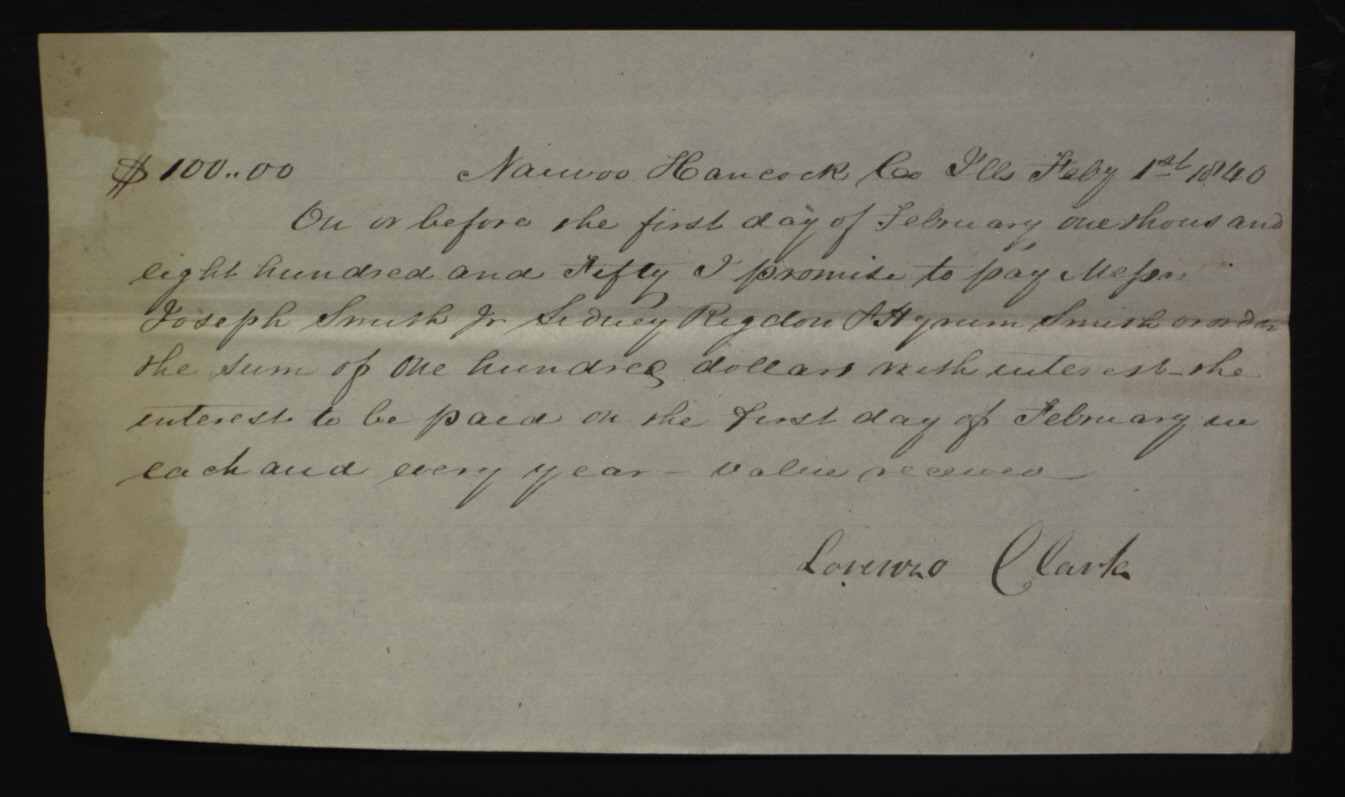 $100..00 Nauvoo Hancock Co Ills Feby 1st 1840
On or before the first day of February one thousand
eight hundred and Fifty I promise to pay Messrs
Joseph Smith Jr Sidney Rigdon & Hyrum Smith or order
the sum of One hundred dollars with interest - the
interest to be paid on the first day of February in
each and every year - value received
Lorenzo Clark